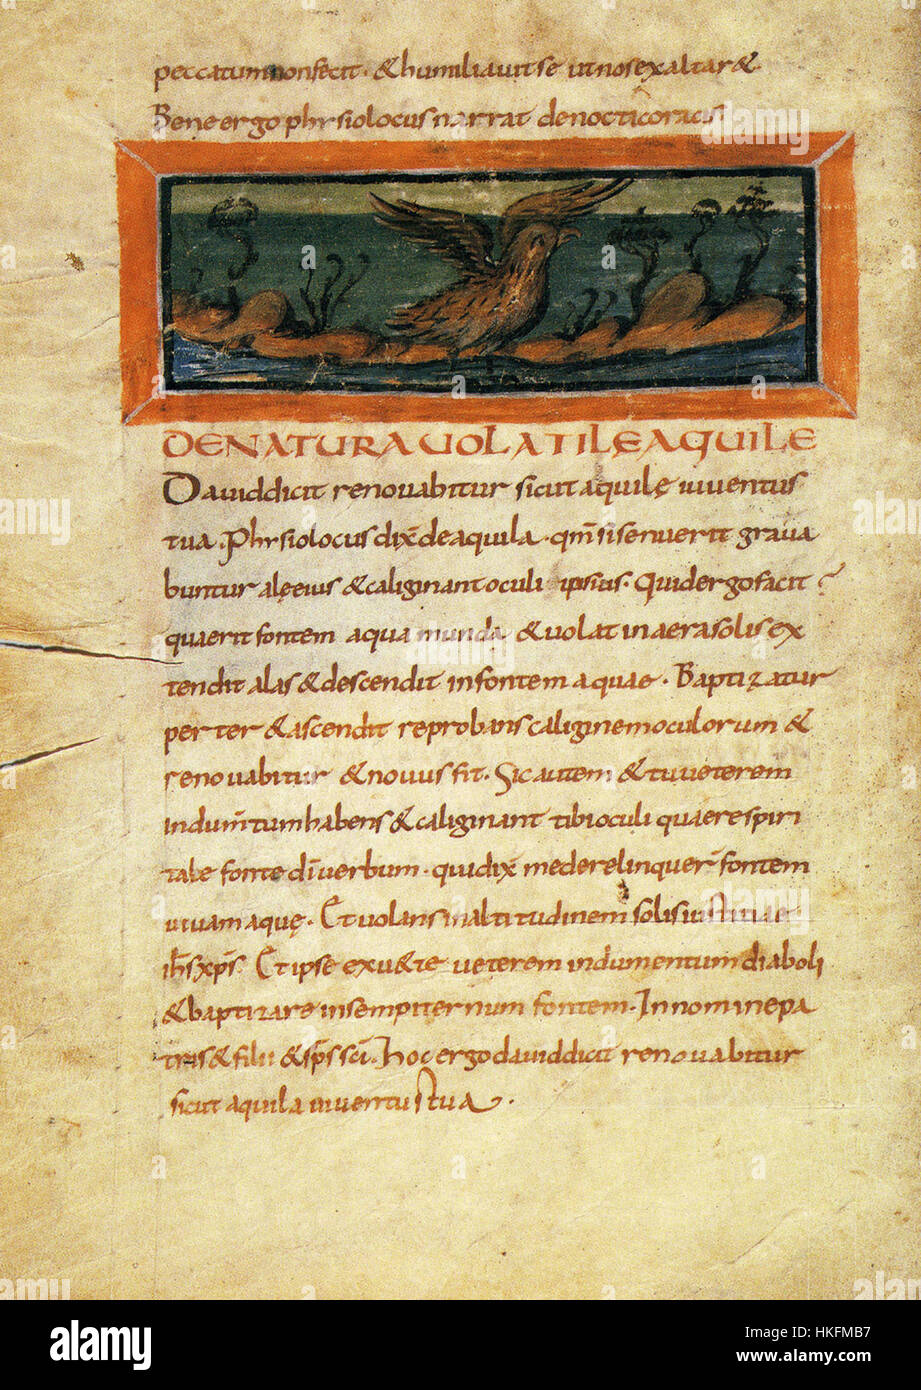 peccatum non fecit · & humiliavit se ut nos exaltar&
Bene ergo phisiolocus narrat denocticoracis
DE NATURA VOLATILE AQUILE
Dauid dicit renouabitur sicut aquilę iuuentus
tua · Phisiolocus dix̄ de aquila · qm̄ si senuerit graua
buntur alę eius & caliginant oculi ipsius · Quid ergo facit?
quaerit fontem aqua munda & uolat in aera solis ex
tendit alas & descendit in fontem aquae · Baptizatur
per ter & ascendit reprobans caliginem oculorum &
renouabitur & nouus fit · Sic autem & tu ueterem
indum̄tum habens & caliginant tibi oculi quaere spiri
tale fonte dī uerbum · qui dix̄ me derelinquer̄ fontem
uiuam aquę · Et uolans in altitudinem solis iustitiae
ih̄s xp̄s · Et ipse exu&te ueterem indumentum diaboli
& baptizare in sempiternum fontem · In nomine pa
tris & filii & sp̄s sc̄i · hoc ergo dauid dicit renouabitur
sicut aquila iuuentus tua ·
alamy
Image ID: HKFMB7
www.alamy.com